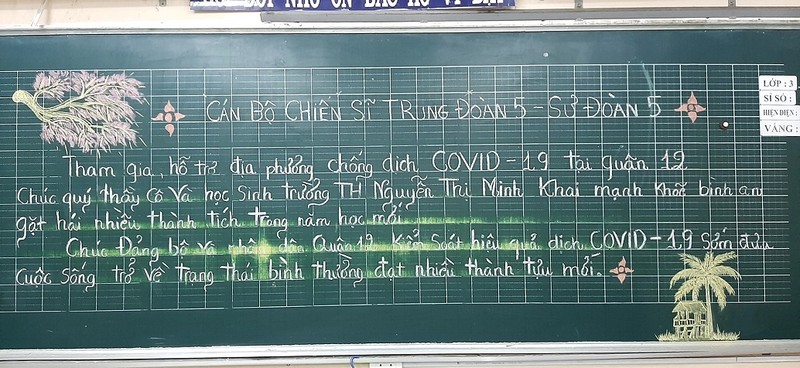 CÁN BỘ CHIẾN SĨ TRUNG ĐOÀN 5 - SƯ ĐOÀN 5
LỚP : 3
SĨ SỐ :
HIỆN DIỆN :
VẮNG :
Tham gia, hỗ trợ địa phương chống dịch COVID - 19 tại quận 12
Chúc quý thầy cô và học sinh trường TH Nguyễn Thị Minh Khai mạnh khoẻ bình an
gặt hái nhiều thành tích trong năm học mới
Chúc Đảng bộ và nhân dân Quận 12 kiểm soát hiệu quả dịch COVID - 19 sớm đưa
cuộc sống trở về trạng thái bình thường đạt nhiều thành tựu mới.